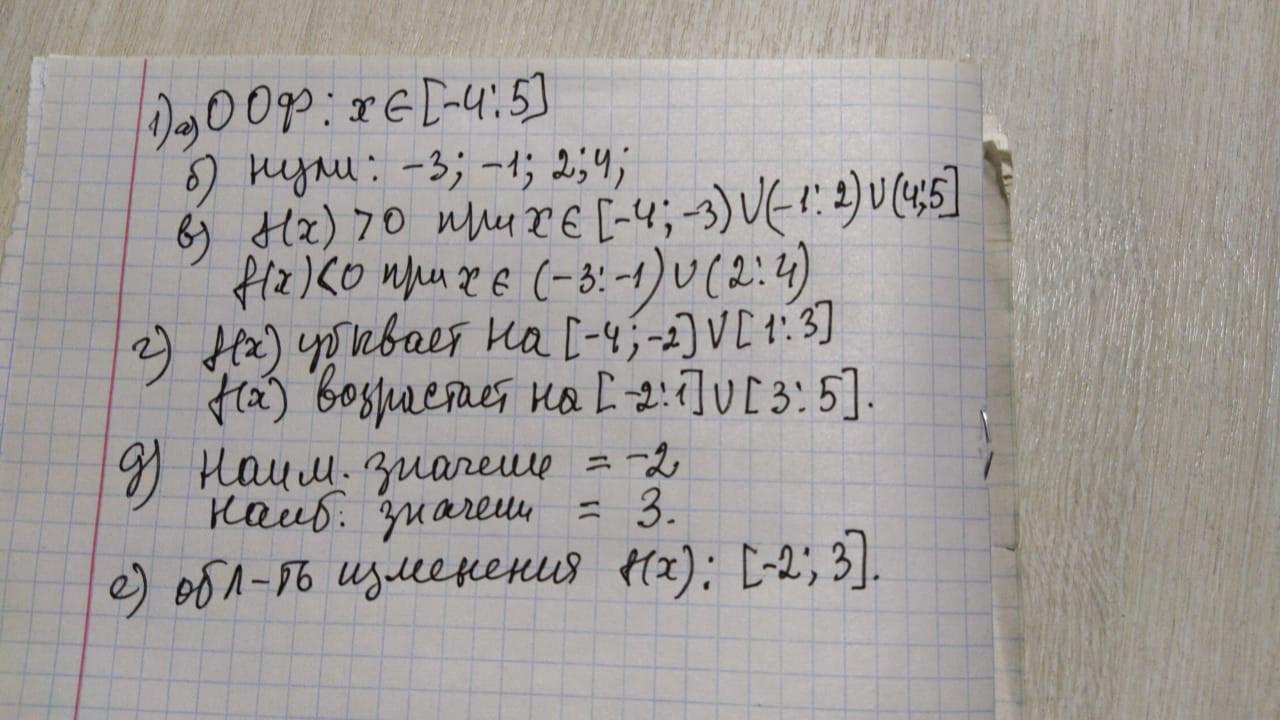 1) а) ООФ: x ∈ [-4; 5]
б) нули: -3; -1; 2; 4;
в) f(x) > 0 при x ∈ [-4; -3) ∪ (-1; 2) ∪ (4; 5]
f(x) < 0 при x ∈ (-3; -1) ∪ (2; 4)
г) f(x) убывает на [-4; -2] ∪ [1; 3]
f(x) возрастает на [-2; 1] ∪ [3; 5].
д) наим. значение = -2
наиб. значени = 3.
е) обл-ть изменения f(x): [-2; 3].